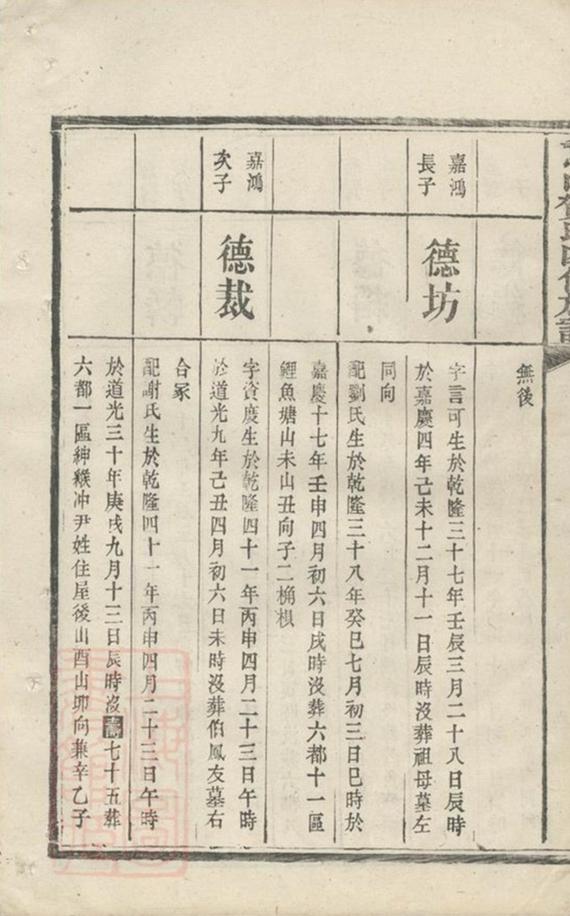 無後
嘉鴻
長子
德坊
字言可生於乾隆三十七年壬辰三月二十八日辰時
於嘉慶四年己未十二月十一日辰時沒葬祖母墓左
同向
配劉氏生於乾隆三十八年癸巳七月初三日巳時於
嘉慶十七年壬申四月初六日戌時沒葬六都十一區
鯉魚塘山未山丑向子二桷棋
嘉鴻
次子
德裁
字資慶生於乾隆四十一年丙申四月二十三日午時
於道光九年己丑四月初六日未時沒葬伯鳳友墓右
合冢
配謝氏生於乾隆四十一年丙申四月二十三日午時
於道光三十年庚戌九月十三日辰時沒壽七十五葬
六都一區紳冲尹姓住屋後山酉山卯向兼辛乙子